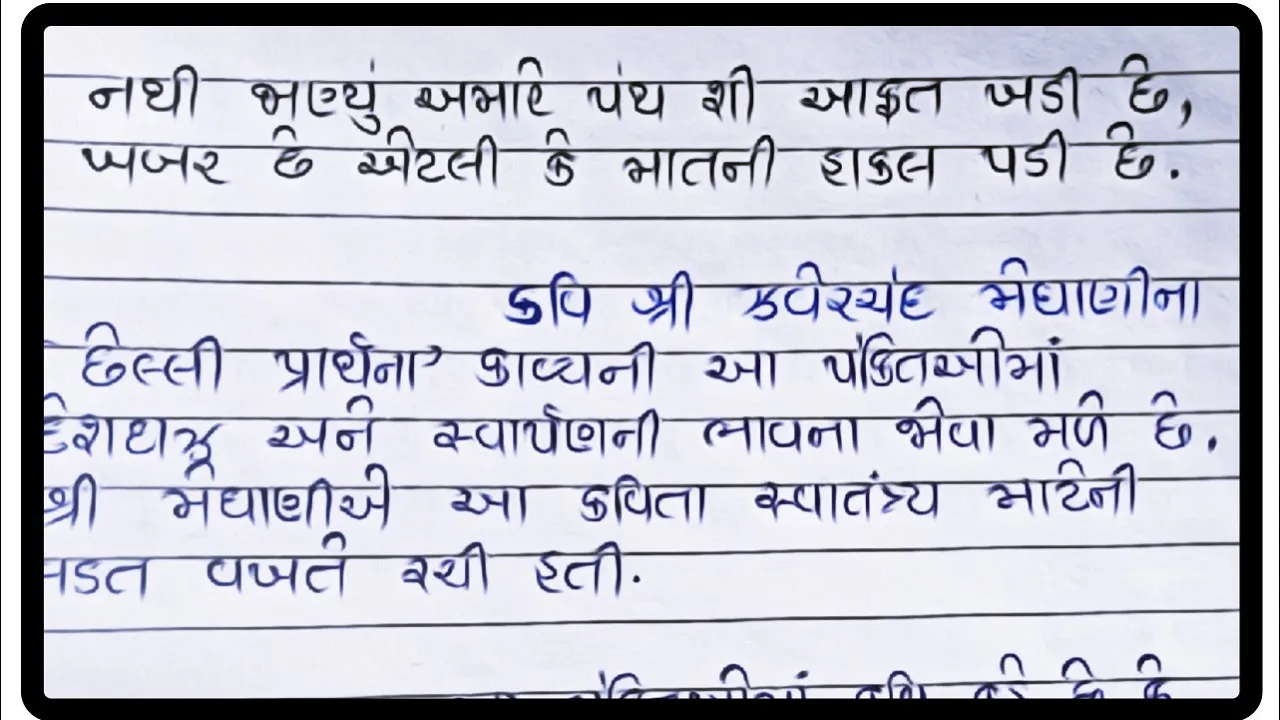 નથી જાણ્યું અમારે પંથ શી આફત ખડી છે,
ખબર છે એટલી કે માતની હાકલ પડી છે.
કવિ શ્રી ઝવેરચંદ મેઘાણીના
છેલ્લી પ્રાર્થના' કાવ્યની આ પંક્તિઓમાં
દેશદાઝ અને સ્વાર્પણની ભાવના જોવા મળે છે.
શ્રી મેઘાણીએ આ કવિતા સ્વાતંત્ર્ય માટેની
લડત વખતે રચી હતી.